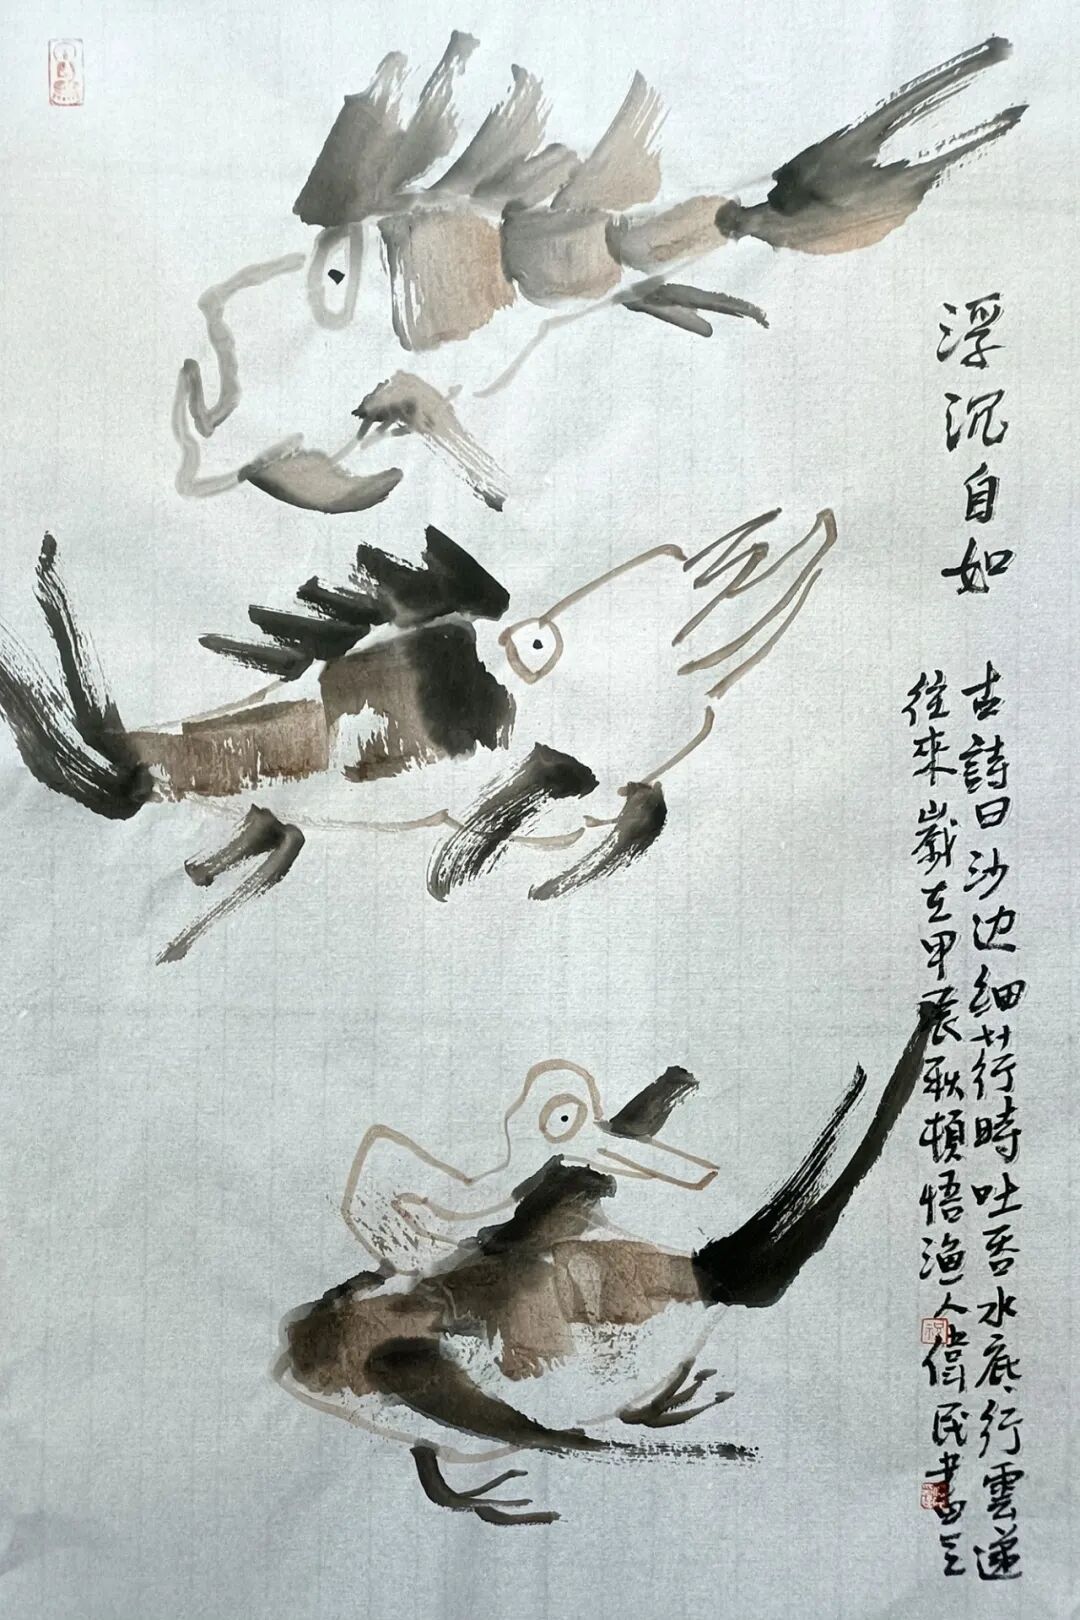 浮沉自如
古詩曰沙边细荇時吐吞水底行雲递
往来歲在甲辰秋頓悟漁人偉民書之